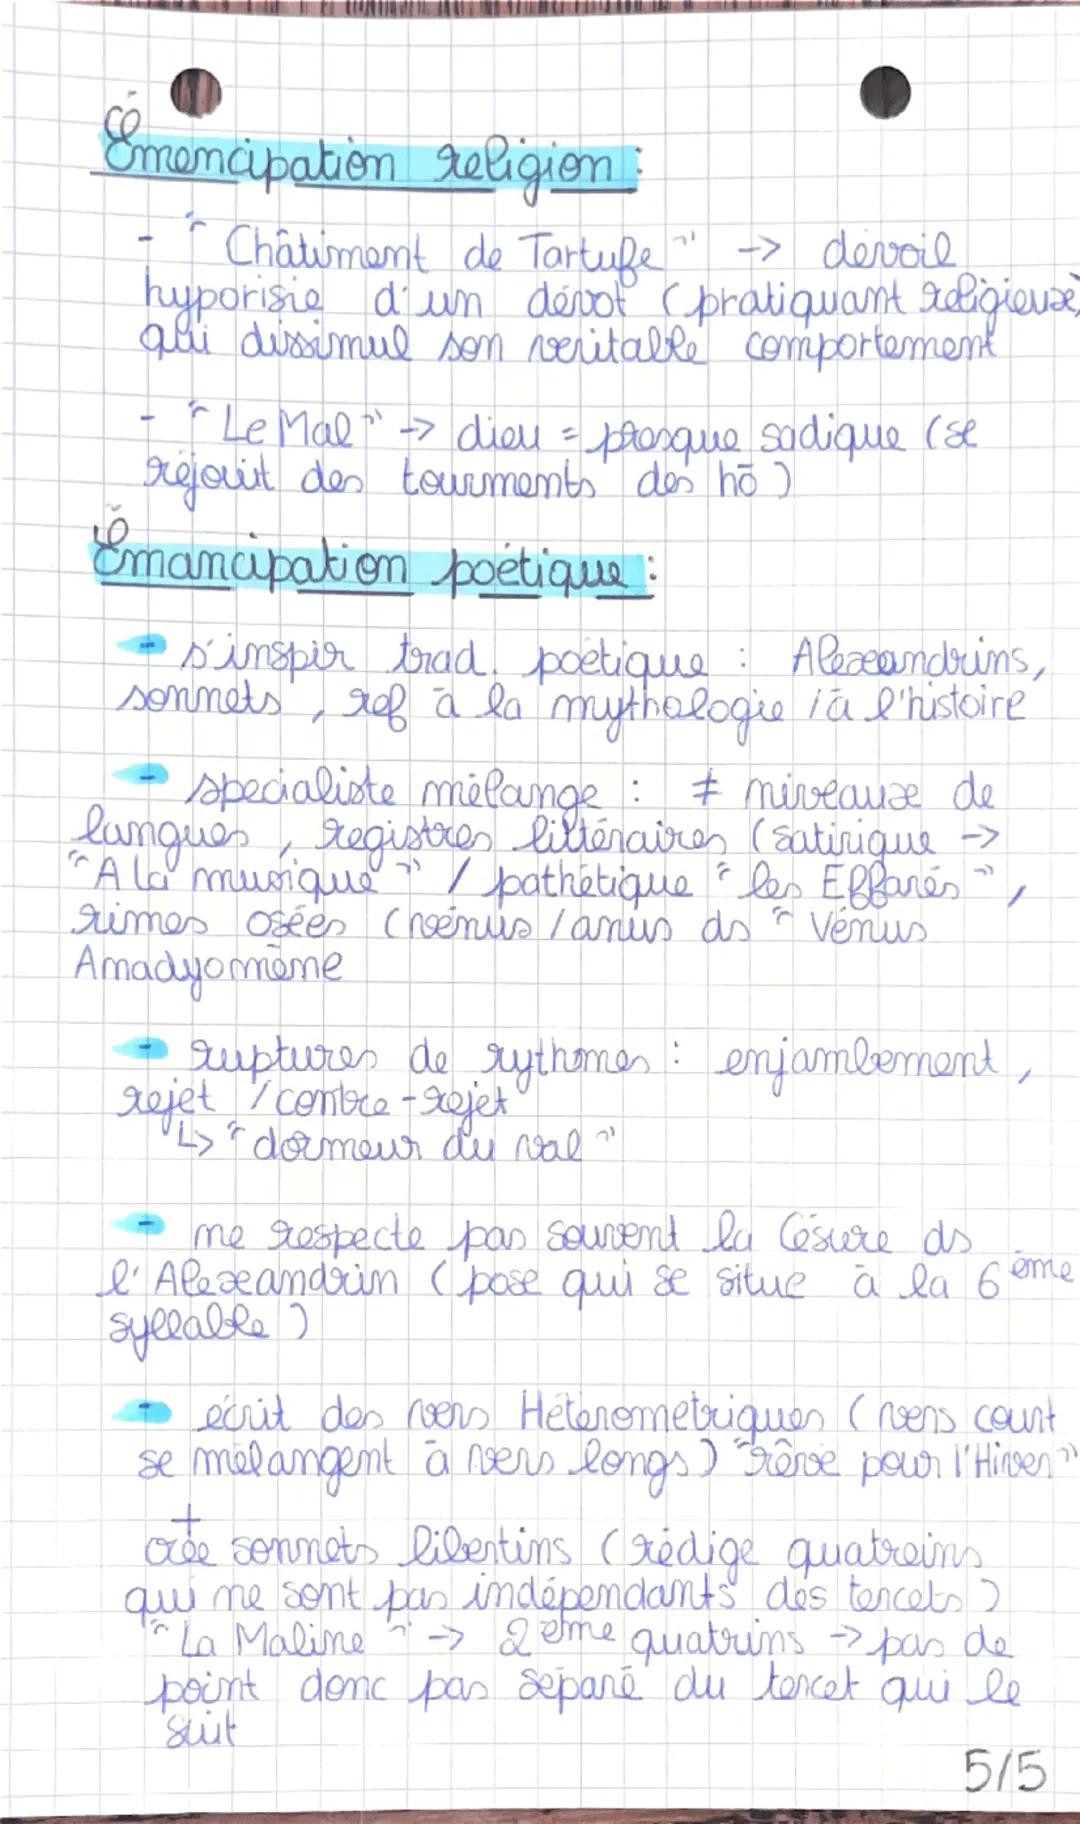 Émencipation religion :
- "Châtiment de Tartufe" -> dévoil
hyporisie d'un dévot (pratiquant religieux)
qui dissimul son veritable comportement
- "Le Mal" -> dieu = presque sadique (se
réjouit des tourments des hō)
Émancipation poétique :
- s'inspir trad. poétique : Alexandrins,
sonnets, ref à la mythologie / à l'histoire
- specialiste mélange : ≠ niveaux de
langues, registres littéraires (satirique ->
"A la musique" / pathétique "les Effarés",
rimes osées (vénus / anus ds "Vénus
Amadyomène
- ruptures de rythmes : enjambement,
rejet / contre-rejet
↳ "dormeur du val"
- ne respecte pas souvent la Césure ds
l'Alexandrin (pose qui se situe à la 6ème
syllable)
- écrit des vers Hétérometriques (vers court
se mélangent à vers longs) "rêve pour l'Hiver"
+
crée sonnets libertins (rédige quatreins
qui ne sont pas indépendants des tercets)
"La Maline" -> 2ème quatrins -> pas de
point donc pas séparé du tercet qui le
suit
5/5